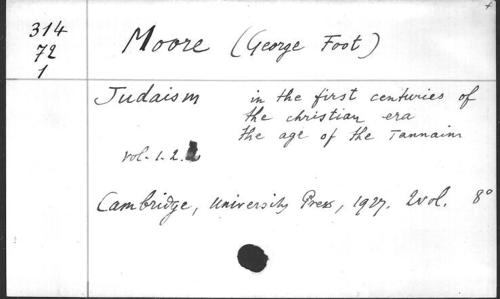 314
72
1
Moore (George Foot)
Judaism in the first centuries of
the christian era
the age of the Tannaim
vol. 1. 2.
Cambridge, University Press, 1927. 2vol. 8°